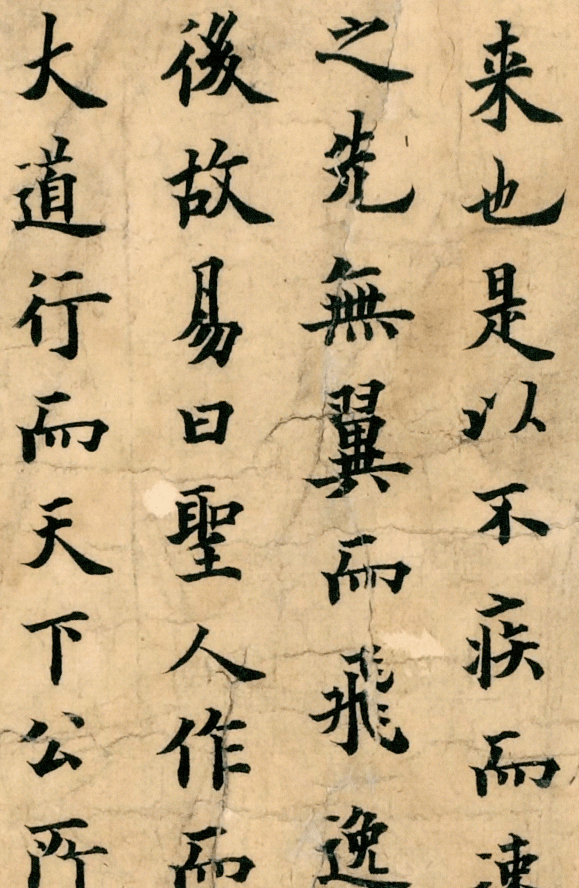 来也是以不疾而速
之先無翼而飛逸
後故易曰聖人作而
大道行而天下公所